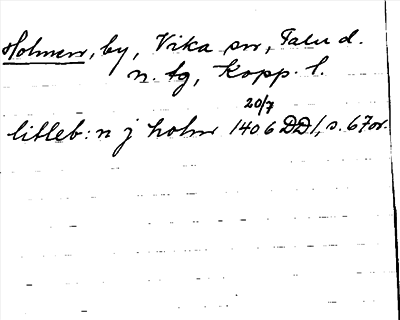 Holmen, by, Vika sn, Falu d.
n. tg, Kopp. l.
20/7
litleb: n j holm 1406 DD 1, s. 67 or.